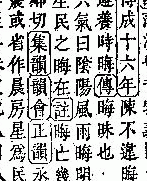 傳成十六年陳不違晦
遵養時晦傳晦昧也
六氣曰陰陽風雨晦
生民之晦在註晦亡幾
鄰切集韻韻會正韻
晨或省作晨房星爲民